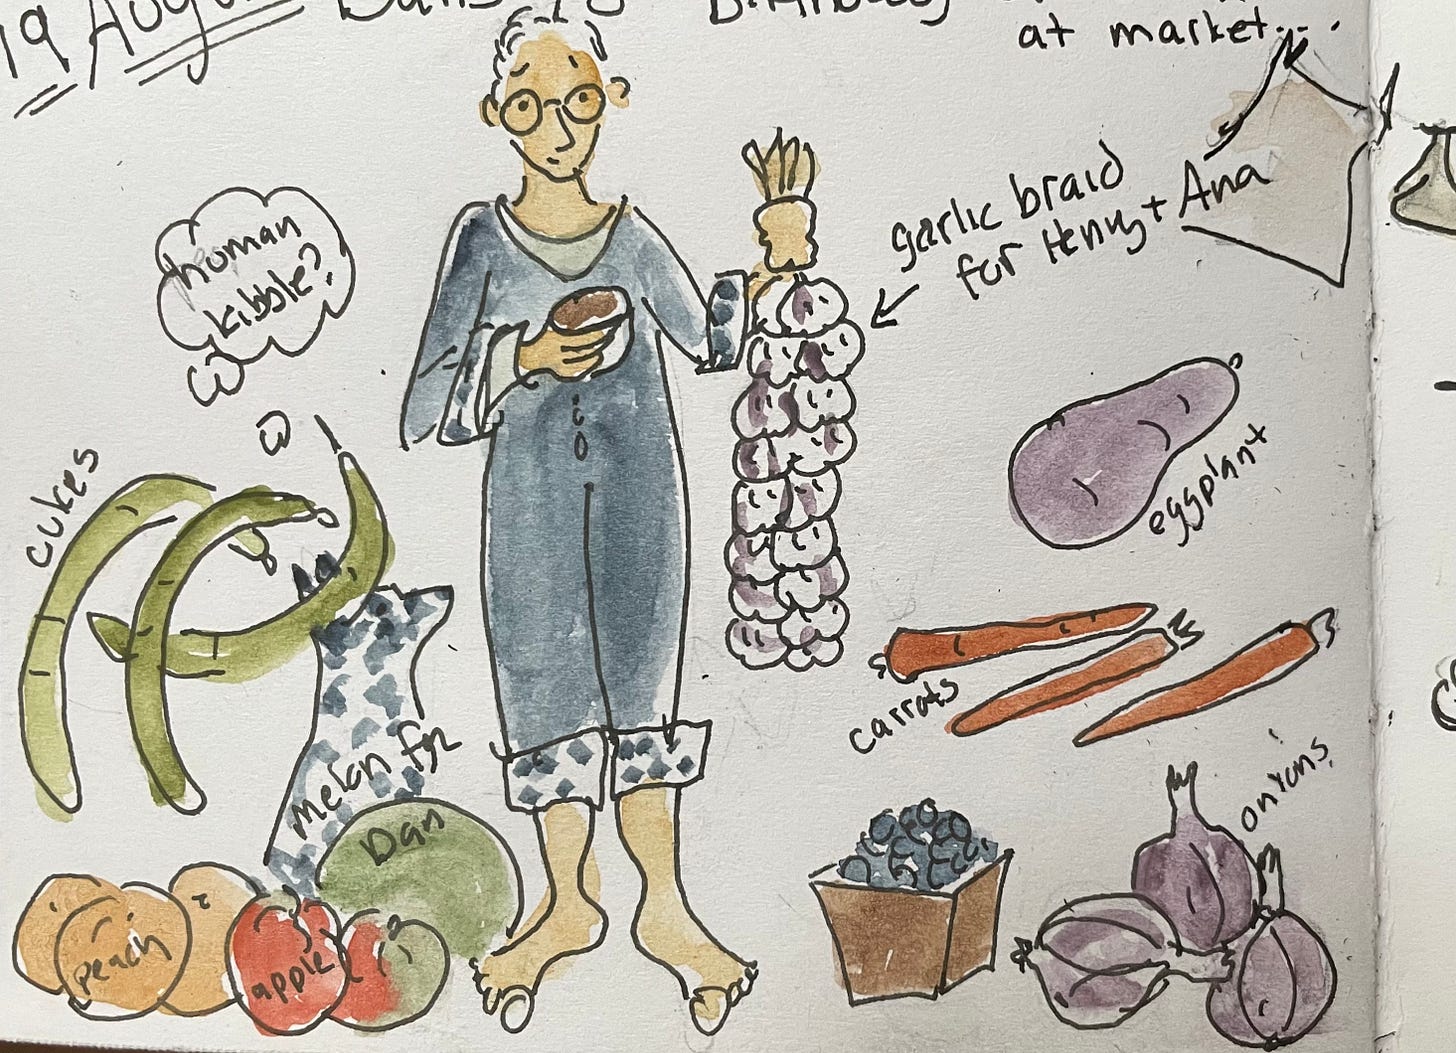 19 August
Birthday
at market...
human
kibble?
garlic braid
for Henry + Ana
cukes
eggplant
carrots
melon for
Dan
onions
peach
apple